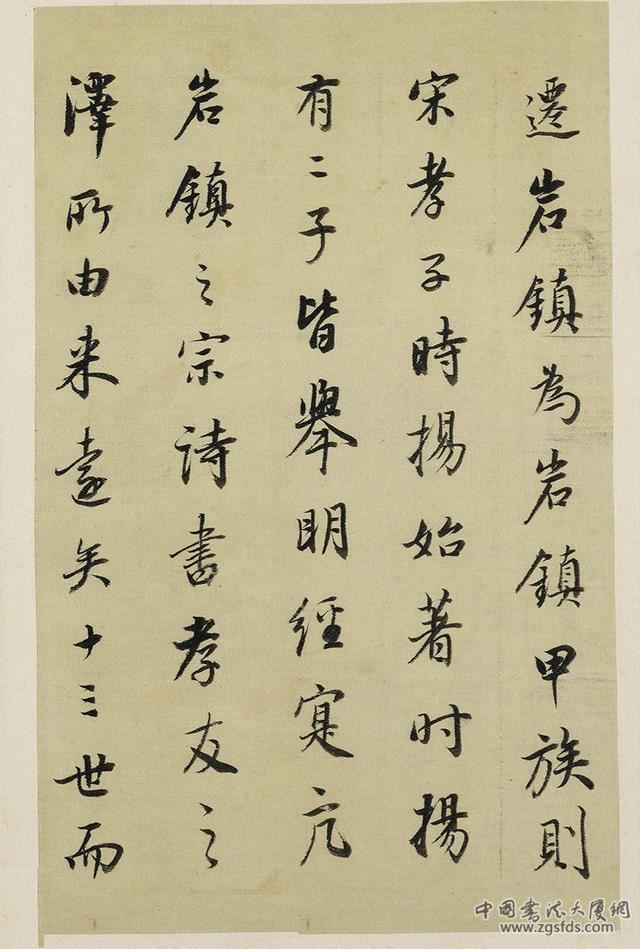 遷岩鎮為岩鎮甲族則
宋孝子時揚始著时揚
有二子皆舉明經寔亢
岩鎮之宗詩書孝友之
澤所由来遠矣十三世而
中国書法大厦網
www.zgsfds.com